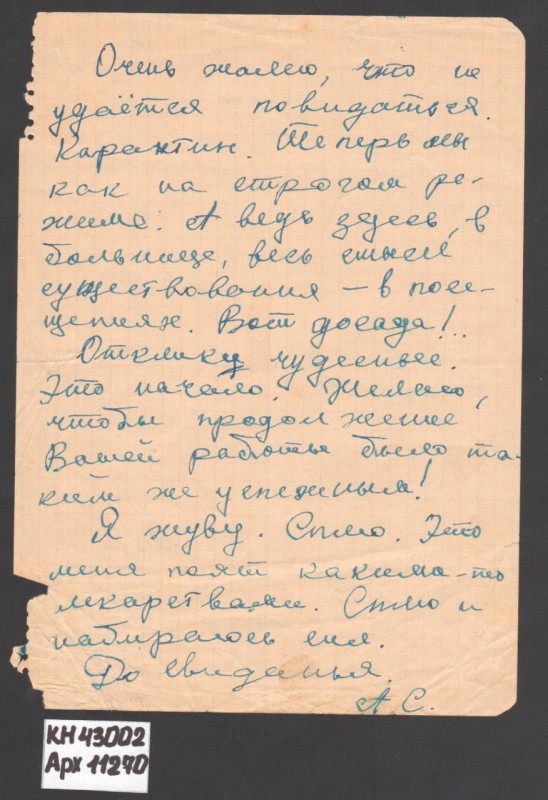 Очень жалею, что не
удаётся повидаться.
Карантин. Теперь мы
как на строгом ре-
жиме. А ведь здесь, в
больнице, весь смысл
существования – в посе-
щениях. Вот досада!..
Отклики чудесные.
Это начало. Желаю,
чтобы продолжение
Вашей работы было та-
ким же успешным!
Я живу. Сплю. Это
меня поят какими-то
лекарствами. Сплю и
набираюсь сил.
До свиданья.
А.С.
КН 43002
Арх 11270